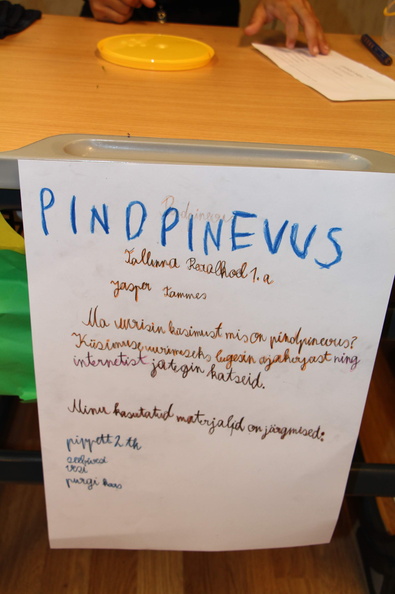 PINDPINEVUS
Tallinna Realkool 1.a
Jasper Tammes
Ma uurisin küsimust mis on pindpinevus?
Küsimuse uurimiseks lugesin ajakirjast ning
internetist ja tegin katseid.
Minu kasutatud materjalid on järgmised:
pippett 2 tk
vesi
purgi kaas